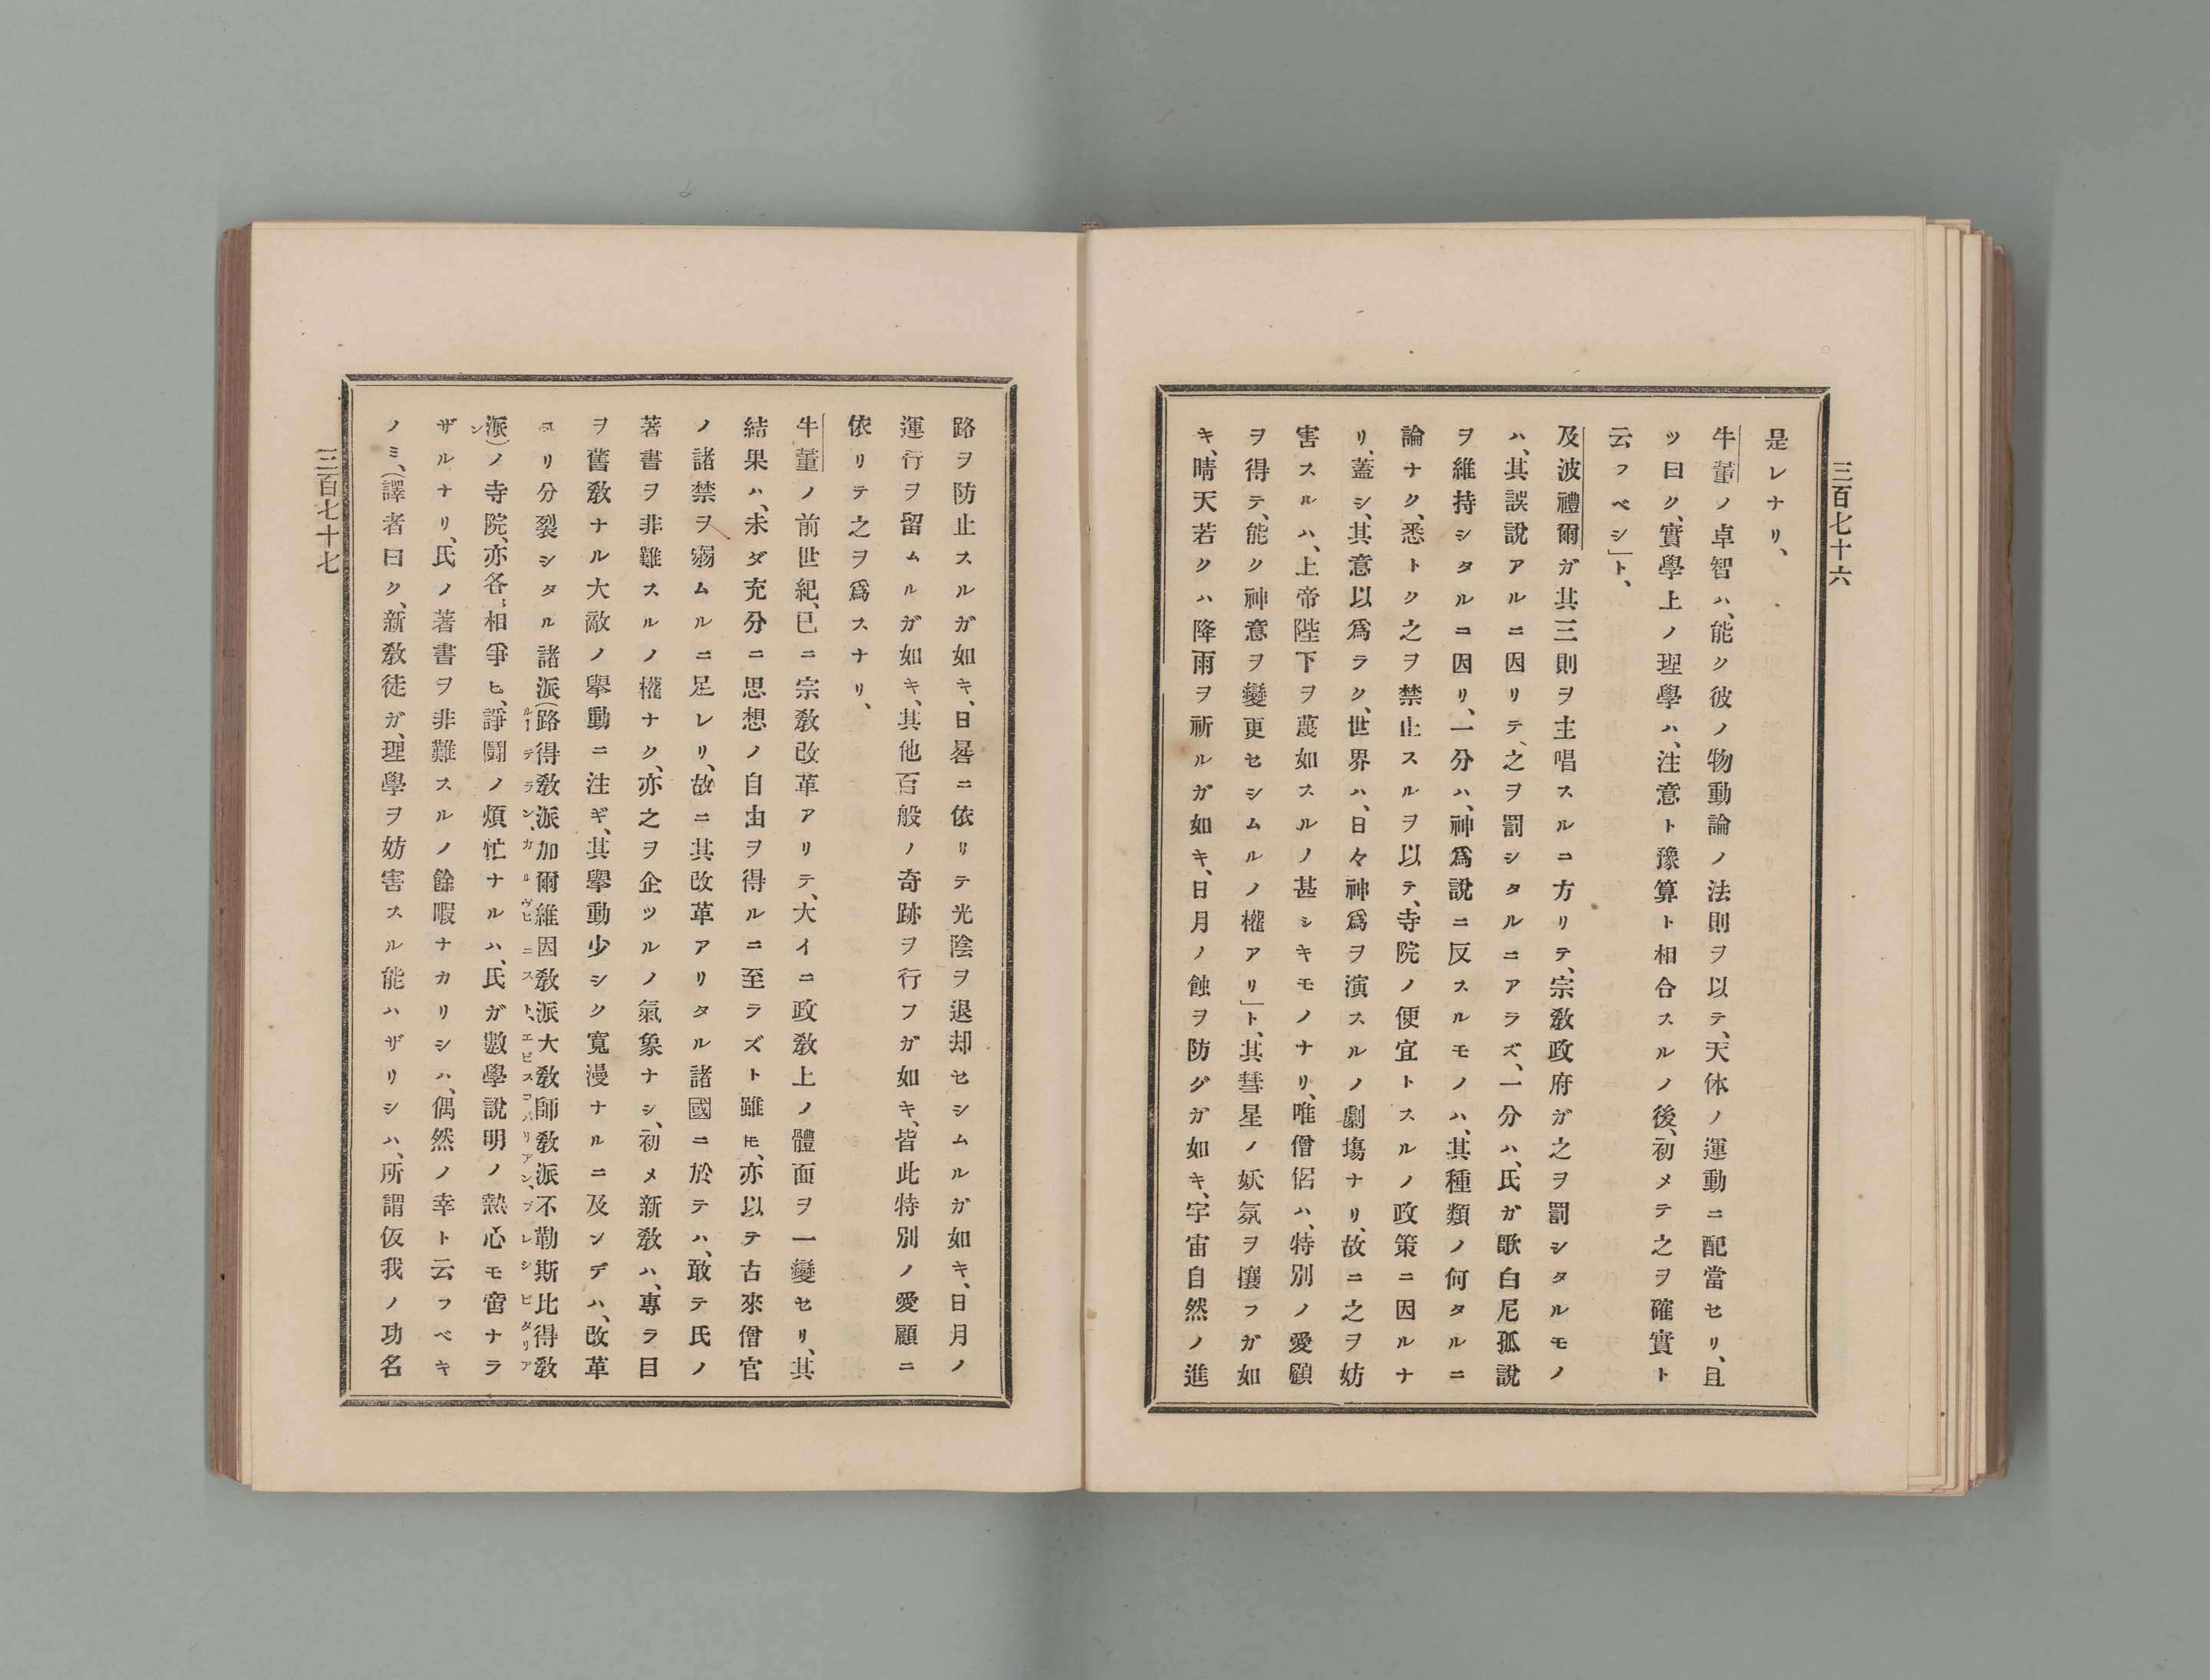 三百七十六
是レナリ、
牛董ノ卓智ハ、能ク彼ノ物動論ノ法則ヲ以テ、天体ノ運動ニ配當セリ、且
ツ曰ク、實學上ノ理學ハ、注意ト豫算ト相合スルノ後、初メテ之ヲ確實ト
云フベシ」ト、
及波禮爾ガ其三則ヲ主唱スルコ方リテ、宗敎政府ガ之ヲ罰シタルモノ
ハ、其誤説アルニ因リテ、之ヲ罰シタルニアラズ、一分ハ、氏ガ歌白尼孤説
ヲ維持シタルコ因リ、一分ハ、神爲說ニ反スルモノハ、其種類ノ何タルニ
論ナク、悉トク之ヲ禁止スルヲ以テ、寺院ノ便宜トスルノ政策ニ因ルナ
リ、蓋シ、其意以爲ラク、世界ハ、日々神爲ヲ演スルノ劇塲ナリ、故ニ之ヲ妨
害スルハ、上帝陛下ヲ蔑如スルノ甚シキモノナリ、唯僧侶ハ、特別ノ愛顧
ヲ得テ、能ク神意ヲ變更セシムルノ權アリ」ト、其彗星ノ妖氛ヲ攘フガ如
キ、晴天若クハ降雨ヲ祈ルガ如キ、日月ノ蝕ヲ防グガ如キ、宇宙自然ノ進
路ヲ防止スルガ如キ、日晷ニ依リテ光陰ヲ退却セシムルガ如キ、日月ノ
運行ヲ留ムルガ如キ、其他百般ノ奇跡ヲ行フガ如キ、皆此特別ノ愛顧ニ
依リテ之ヲ爲スナリ、
牛董ノ前世紀、已ニ宗敎改革アリテ、大イニ政敎上ノ體面ヲ一變セリ、其
結果ハ、未ダ充分ニ思想ノ自由ヲ得ルニ至ラズト雖モ、亦以テ古來僧官
ノ諸禁ヲ弱ムルニ足レリ、故ニ其改革アリタル諸國ニ於テハ、敢テ氏ノ
著書ヲ非難スルノ權ナク、亦之ヲ企ツルノ氣象ナシ、初メ新敎ハ、專ラ目
ヲ舊敎ナル大敵ノ擧動ニ注ギ、其擧動少シク寬漫ナルニ及ンデハ、改革
ヨリ分裂シタル諸派(路得敎派加爾維因敎派大敎師敎派不勒斯比得敎
ルーテラン、カルヴヒニスト、エピスコパリアン、プレシビタリア
派)ノ寺院、亦各〻相爭ヒ、諍鬪ノ煩忙ナルハ、氏ガ數學說明ノ熱心モ啻ナラ
ン
ザルナリ、氏ノ著書ヲ非難スルノ餘暇ナカリシハ、偶然ノ幸ト云フベキ
ノミ、(譯者曰ク、新敎徒ガ、理學ヲ妨害スル能ハザリシハ、所謂仮我ノ功名
三百七十七